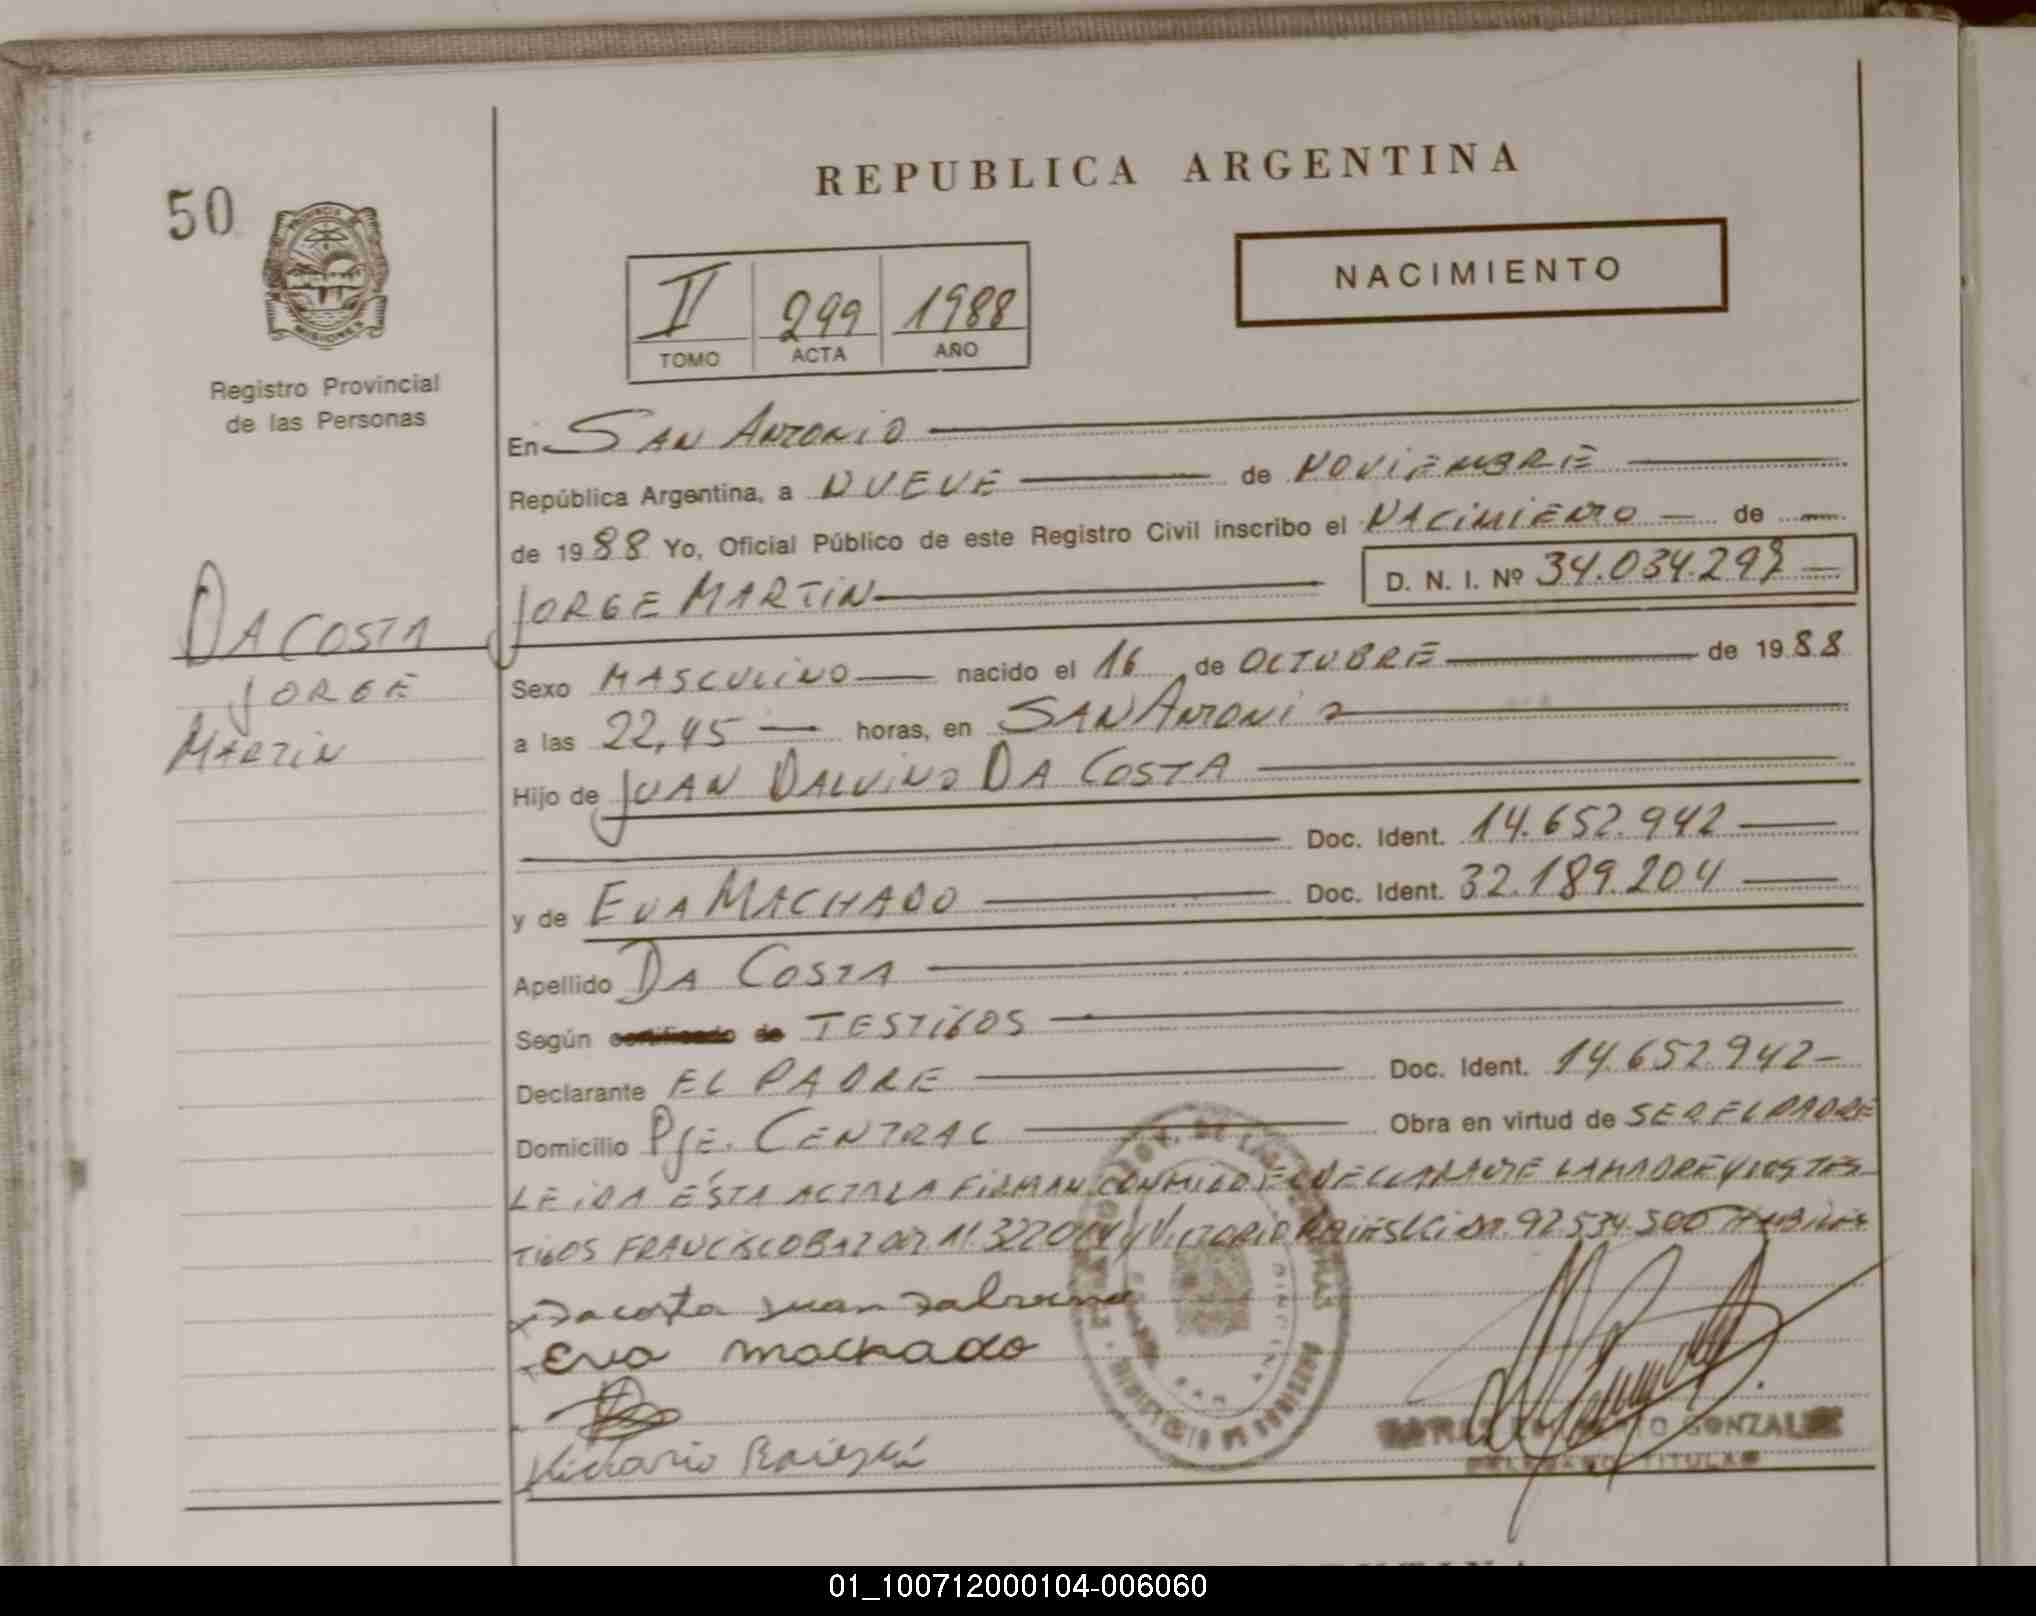 REPUBLICA ARGENTINA
50
PROVINCIA DE
MISIONES
Registro Provincial
de las Personas
NACIMIENTO
II 299 1988
TOMO ACTA AÑO
En SAN ANTONIO
República Argentina, a NUEVE de NOVIEMBRE
de 1988 Yo, Oficial Público de este Registro Civil inscribo el NACIMIENTO de
JORGE MARTIN D. N. I. Nº 34.034.298
DA COSTA
JORGE
MARTIN
Sexo MASCULINO nacido el 16 de OCTUBRE de 1988
a las 22,45 horas, en SAN ANTONIO
Hijo de JUAN DALVINO DA COSTA
Doc. Ident. 14.652.942
y de EVA MACHADO Doc. Ident. 32.189.204
Apellido DA COSTA
Según certificado de TESTIGOS
Declarante EL PADRE Doc. Ident. 14.652.942
Domicilio PJE. CENTRAL Obra en virtud de SER EL PADRE
LEIDA ÉSTA ACTA LA FIRMAN CONMIGO EL DECLARANTE LA MADRE Y LOS TES-
TIGOS FRANCISCO 92.534.500
Dacosta Juan Dalvino
Eva machado
GONZALEZ
DELEGADO TITULAR
01_100712000104-006060